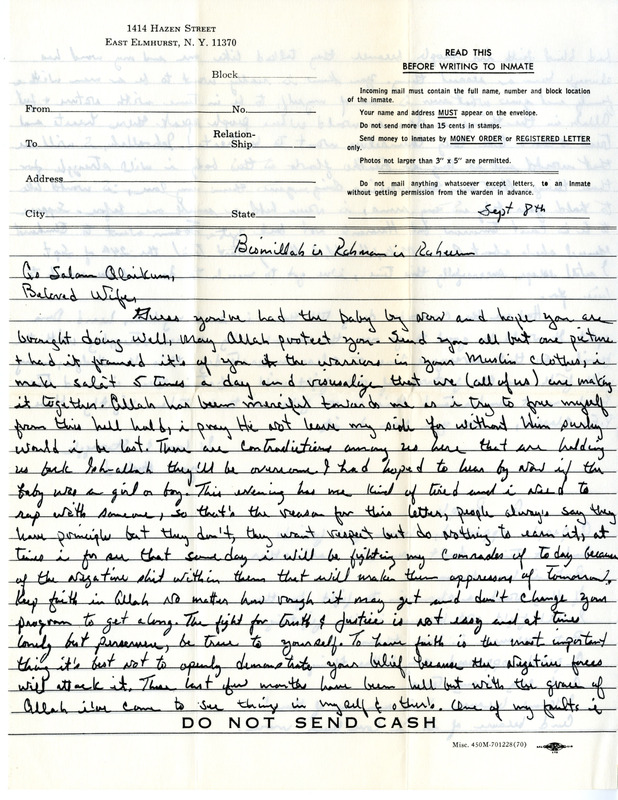 1414 HAZEN STREET
EAST ELMHURST, N. Y. 11370
READ THIS
BEFORE WRITING TO INMATE
Block
Incoming mail must contain the full name, number and block location
of the inmate.
Your name and address MUST appear on the envelope.
Do not send more than 15 cents in stamps.
Send money to inmates by MONEY ORDER or REGISTERED LETTER
only.
Photos not larger than 3" x 5" are permitted.
Do not mail anything whatsoever except letters, to an Inmate
without getting permission from the warden in advance.
From No.
To Relation-
Ship
Address
City State
Sept 8th
Bismillah ir Rahman ir Raheem
As Salaam Alaikum,
Beloved Wife,
Guess you've had the baby by now and hope you are
brought doing well, may Allah protect you. Send you all but one picture
& had it framed it's of you & the warriors in your Muslim clothes, i
make salat 5 times a day and visualize that we (all of us) are making
it together. Allah has been merciful towards me as i try to free myself
from this hell hold, i pray He not leave my side for without Him surley
would i be lost. There are contradictions among us here that are holding
us back Insh-allah they'll be overcome I had hoped to hear by now if the
baby was a girl or boy. This evening has me kind of tired and i need to
rap with someone, so that's the reason for this letter, people always say they
have principle but they don't, they want respect but do nothing to earn it, at
times i for see that someday i will be fighting my comrades of today because
of the negative shit within them that will make them oppressors of Tomorrow.
Keep faith in Allah no matter how rough it may get and don't change your
program to get along. The fight for truth & Justice is not easy and at times
lonely but persevere, be true to yourself. To have faith is the most important
thing it's best not to openly demonstrate your belief because the negative forces
will attack it. These last few months have been hell but with the grace of
Allah i've come to see things in myself & others. One of my faults is
DO NOT SEND CASH
Misc. 450M-701228(70)